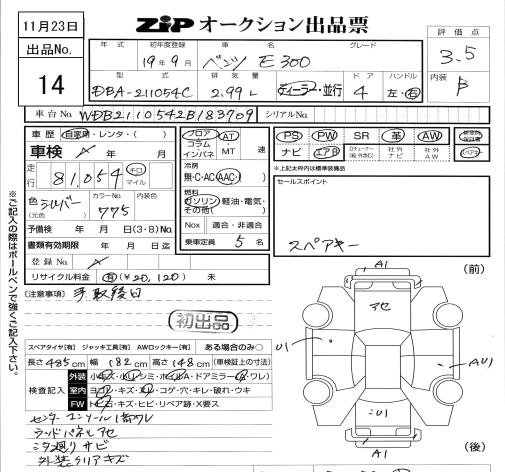 11月23日
ZIP オークション出品票
出品No.
14
評価点
3.5
内装
B
年式 初年度登録 車名 グレード
19年9月 ベンツ E300
型式 排気量 ドア ハンドル
DBA-211054C 2.99L ディーラー・並行 4 左・右
車台No. WDB2110542B183709 シリアルNo.
車歴 自家用・レンタ・( )
車検 年 月
走行 81,054 キロ マイル
色(元色) シルバー カラーNo. 775 内装色
予備検 年 月(3・8)No.
書類有効期限 年 月 日迄
登録No.
リサイクル料金 有(¥20,120) 未
フロア コラム インパネ AT・MT 速
冷房
無・C・AC・AAC
燃料
ガソリン・軽油・電気・その他( )
Nox 適合・非適合
乗車定員 5 名
PS PW SR 革 AW
ナビ エアB 社外ナビ 社外AW
スペアキー
※上記太枠内は標準装備品
セールスポイント
スペアキー
[注意事項]
初出品
スペアタイヤ[有] ジャッキ工具[有] AWロックキー[有] ある場合のみ○
長さ485cm 幅182cm 高さ148cm (車検証上の寸法)
検査記入
外装 小キズ・小・シミ・ホイルA・ドアミラー(キ・ワレ)
室内 ヨゴレ・キズ・スレ・コゲ・穴・キレ・破れ・ウキ
FW トビ石・キズ・ヒビ・リペア跡・X要ス
センターコンソール1部ワレ
ウッドパネルアセ
外装クリアキズ
※ご記入の際はボールペンで強くご記入下さい。
(前)
A1
アセ
U1
AU1
A1
(後)